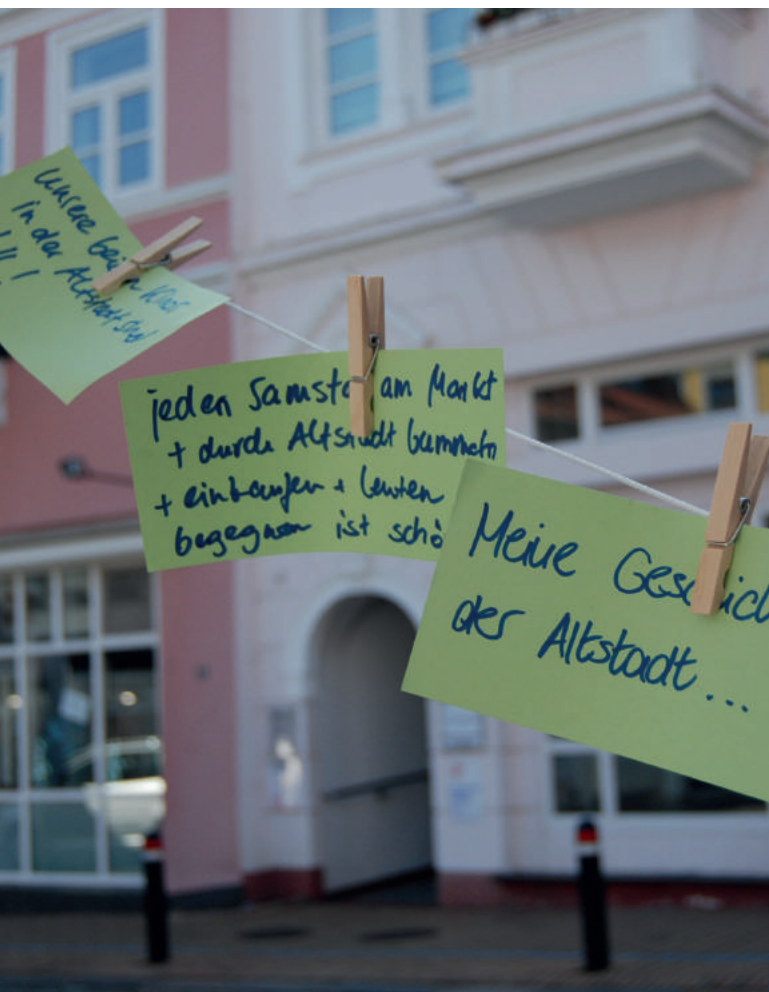 Unsere
in der Altstadt sind
jeden Samsta am Markt
+ durch Altstadt bummeln
+ einkaufen + Leuten
begegnen ist schö
Meine Gesc ich
der Altstadt...